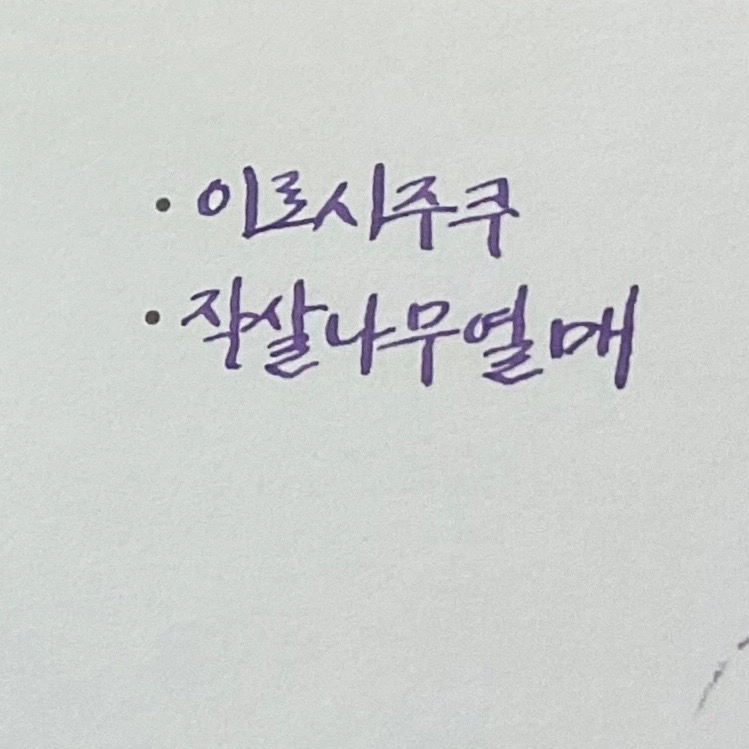 · 이로시주쿠
· 작살나무열매